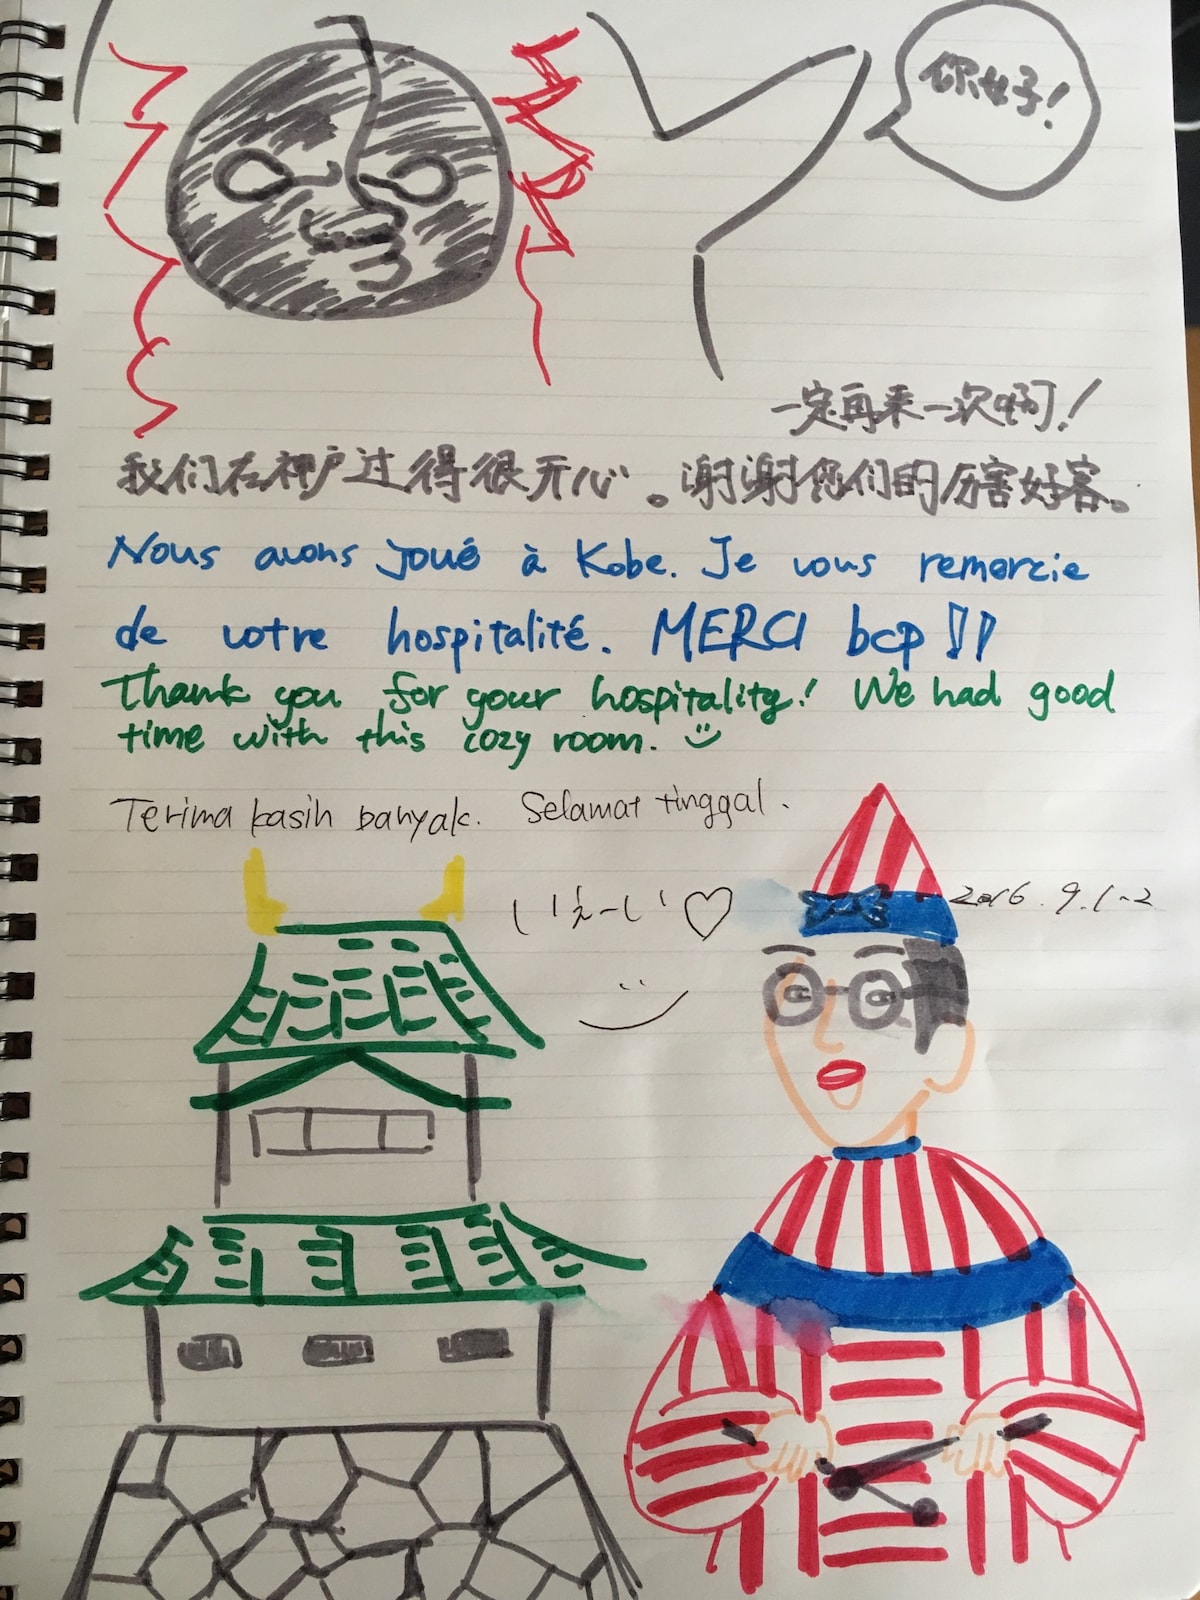 你好!
一定再来一次啊!
我们在神户过得很开心。谢谢你们的厉害好客。
Nous avons joué à Kobe. Je vous remercie
de votre hospitalité. MERCI bcp!!
Thank you for your hospitality! We had good
time with this cozy room.
Terima kasih banyak. Selamat tinggal.
いえーい♡
2016.9.1~2